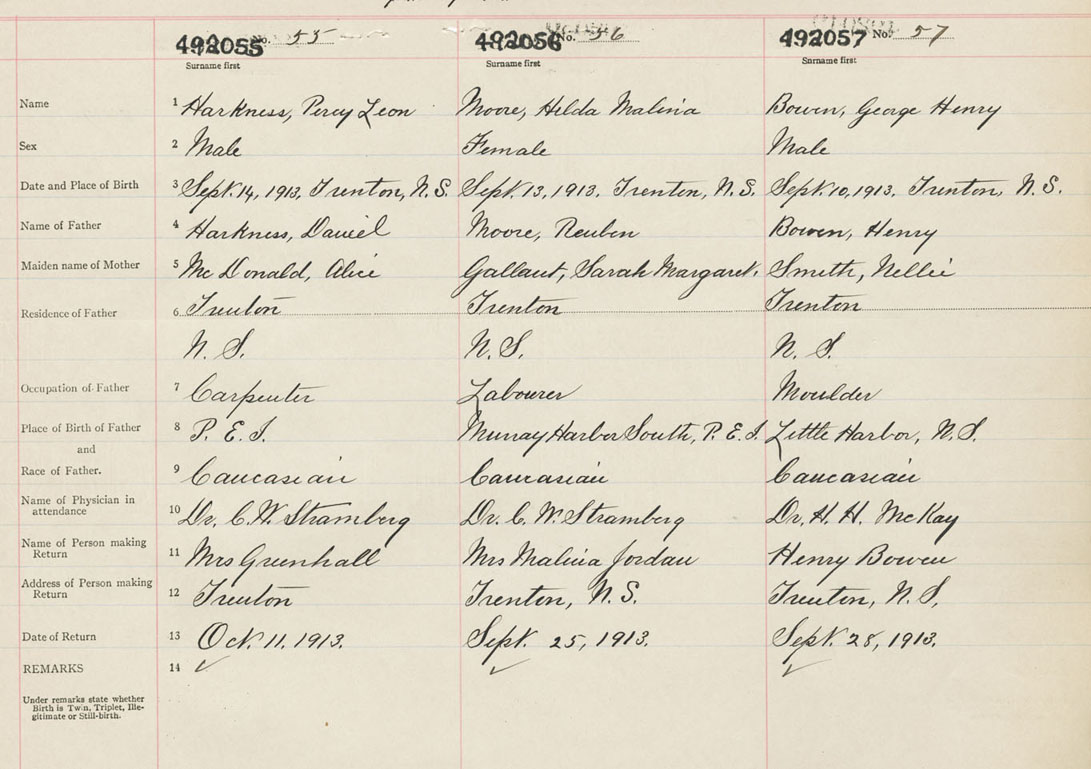 492055 No. 55 492056 No. 56 492057 No. 57
Surname first Surname first Surname first
Name 1 Harkness, Percy Leon Moore, Helda Malina Bowen, George Henry
Sex 2 Male Female Male
Date and Place of Birth 3 Sept. 14, 1913, Trenton, N.S. Sept. 13, 1913. Trenton, N.S. Sept. 10, 1913. Trenton, N.S.
Name of Father 4 Harkness, Daniel Moore, Reuben Bowen, Henry
Maiden name of Mother 5 Mc Donald, Alice Gallant, Sarah Margaret. Smith, Nellie
Residence of Father 6 Trenton Trenton Trenton
N. S. N. S. N. S.
Occupation of Father 7 Carpenter Labourer Moulder
Place of Birth of Father 8 P. E. I. Murray Harbor South, P. E. I. Little Harbor, N.S.
and
Race of Father. 9 Caucasian Caucasian Caucasian
Name of Physician in attendance 10 Dr. C. W. Stramberg Dr. C. W. Stramberg Dr. H. H. McKay
Name of Person making Return 11 Mrs Greenhall Mrs Malina Jordan Henry Bowen
Address of Person making Return 12 Trenton Trenton, N.S. Trenton, N.S.
Date of Return 13 Oct. 11. 1913. Sept. 25, 1913. Sept. 28, 1913.
REMARKS 14
Under remarks state whether
Birth is Twin, Triplet, Ille-
gitimate or Still-birth.